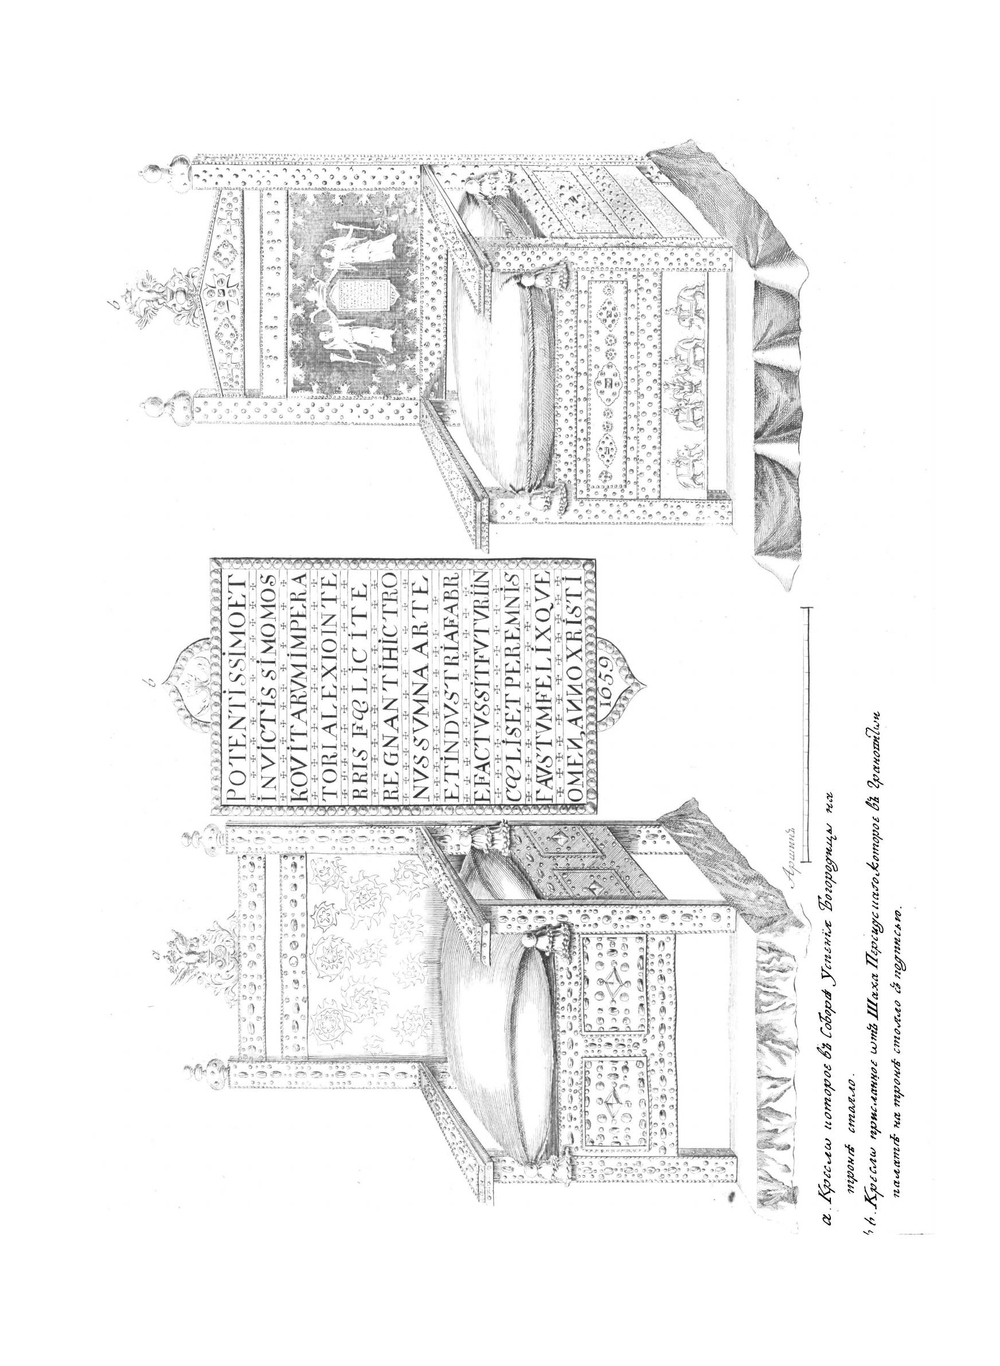 a
b
b
POTENTISSIMOET
INVICTISSIMOMOS
KOVITARVMIMPERA
TORIALEXIOINTE
RRIS FŒLICITE
REGNANTIHICTRO
NVSSVMNAARTE
ETINDVSTRIAFABR
EFACTVSSITFVTVRIIN
CŒLISETPEREMNIS
FAVSTVMFELIXQVE
OMEN,ANNOXRISTI
1659
Аршинъ
a. Кресло которое въ Соборѣ Успенїѧ Богородицы на
тронѣ стояло.
b. Кресло присланное ѿтъ Шаха Персидскаго, которое въ Грановитои
палатѣ на тронѣ стояло съ подписью.